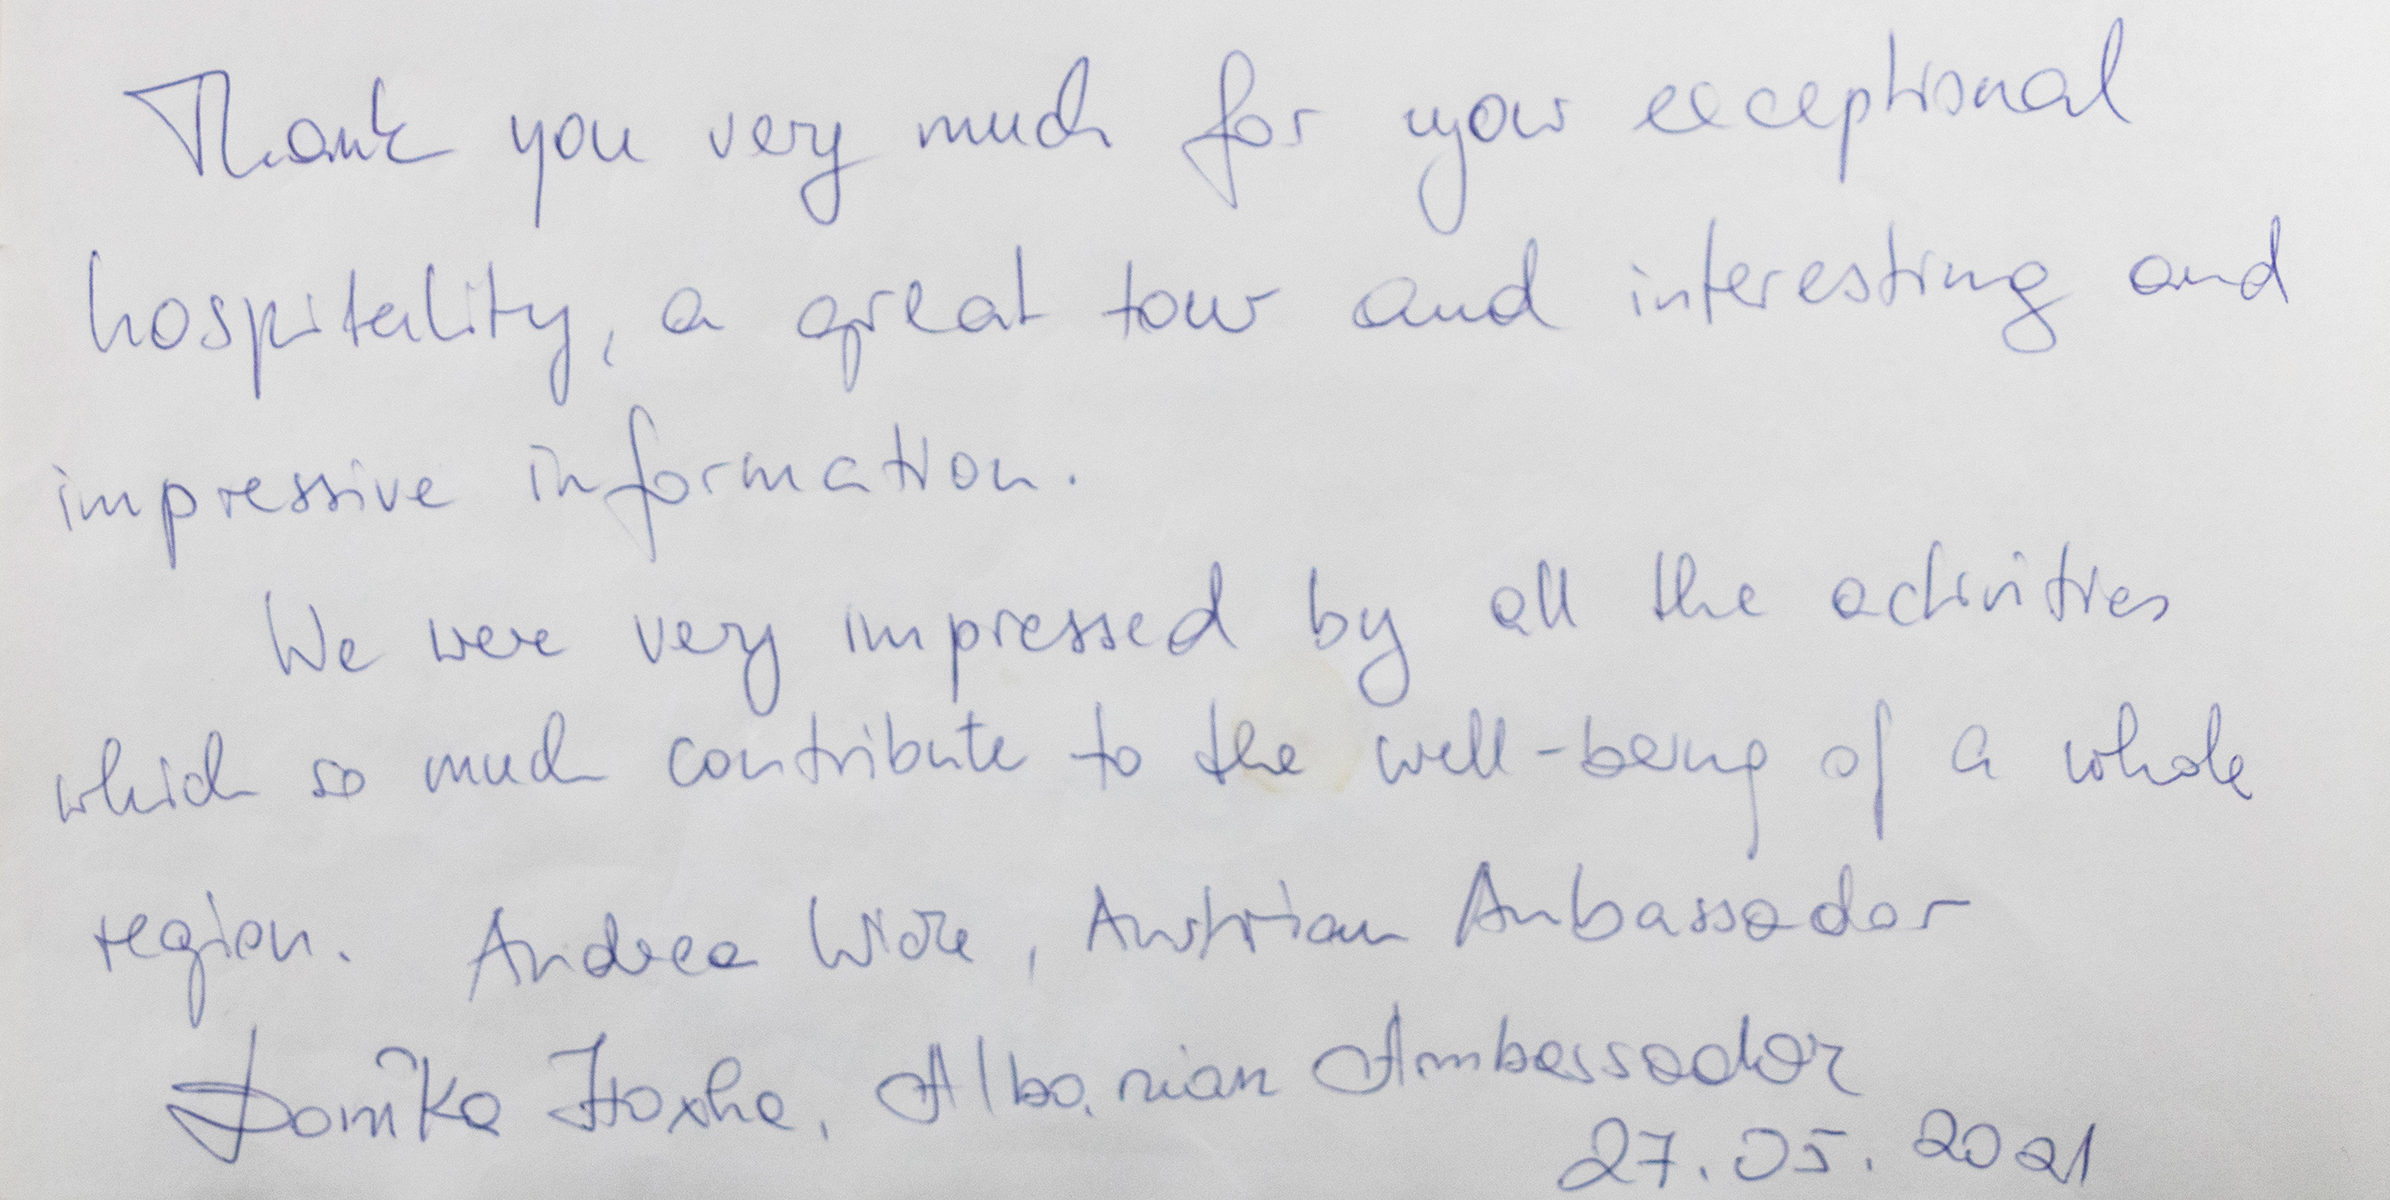 Thank you very much for your exceptional
hospitality, a great tour and interesting and
impressive information.
We were very impressed by all the activities
which so much contribute to the well-being of a whole
region. Andrea Wicke, Austrian Ambassador
Donika Hoxha, Albanian Ambassador
27.05.2021